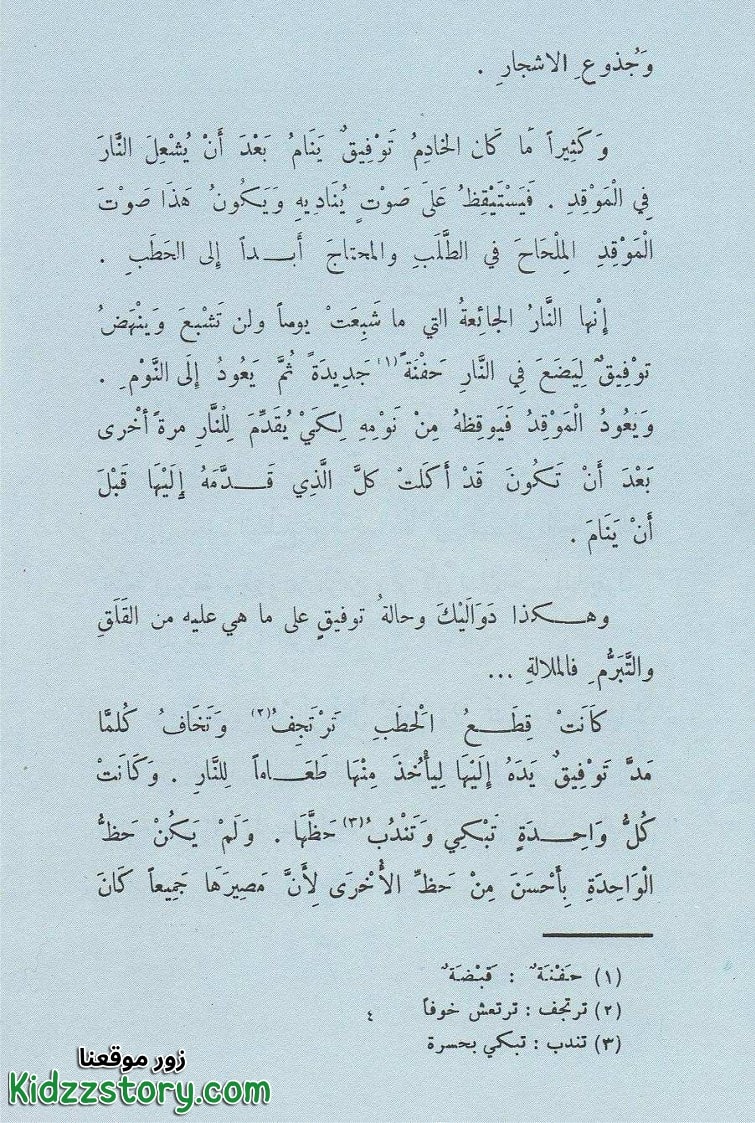 وَجُذوعِ الاشجارِ .
وَكَثِيراً مَا كَان الخادِمُ تَوْفِيقٌ يَنَامُ بَعْدَ أَنْ يُشْعِلَ النَّارَ
فِي الْمَوْقِدِ . فَيَسْتَيْقِظُ عَلَى صَوْتٍ يُنَادِيهِ وَيَكُونُ هَذَا صَوْتَ
الْمَوْقِدِ المِلْحَاحَ في الطَّلَبِ والمحتاجَ أَبــداً إلى الحَطَبِ .
إِنْها النَّارُ الجائِعةُ التي ما شَبِعَتْ يوماً ولن تَشْبعَ وَيَنْهَضُ
توْفِيقٌ لِيَضَعَ فِي النَّارِ حَفْنَةً (١) جَدِيدَةً ثُمَّ يَعُودُ إِلَى النَّوْمِ .
وَيَعُودُ الْمَوْقِدُ فَيَوقِظهُ مِنْ نَوْمِهِ لِكَيْ يُقَدِّمَ لِلْنَّارِ مرةً أخْرى
بَعْدَ أَنْ تَكُونَ قَدْ أَكَلَتْ كلَّ الَّذِي قَــدَّمَهُ إِلَيْهَا قَبْلَ
أَنْ يَنَامَ .
وهــكذا دَوَالَيْكَ وحالةُ توفيقٍ على ما هي عليه من القَلَقِ
والتَّبَرُّمِ فالملالةِ ...
كَاَنَتْ قِطَــعُ الْحطَبِ تَرْتَجِفُ (٢) وَتَخَافُ كُلمَّا
مَدَّ تَوْفِيقٌ يَدَهُ إِلَيْهَا لِيأْخُذَ مِنْهَا طَعَـاماً لِلنَّارِ . وَكَانَتْ
كُلُّ وَاحِــدَةٍ تَبْكِي وَتَنْدُبُ (٣) حَظَّهَا . وَلَمْ يَكُنْ حَظُّ
الْوَاحِدَةِ بِأَحْسَنَ مِنْ حَظِّ الأُخْرَى لِأَنَّ مَصِيرَهَا جَمِيعاً كَانَ
(١) حَفْنَةٌ : قَبْضَةٌ
(٢) ترتجف : ترتعش خوفاً
(٣) تندب : تبكي بحسرة
٤
زور موقعنا
Kidzzstory.com